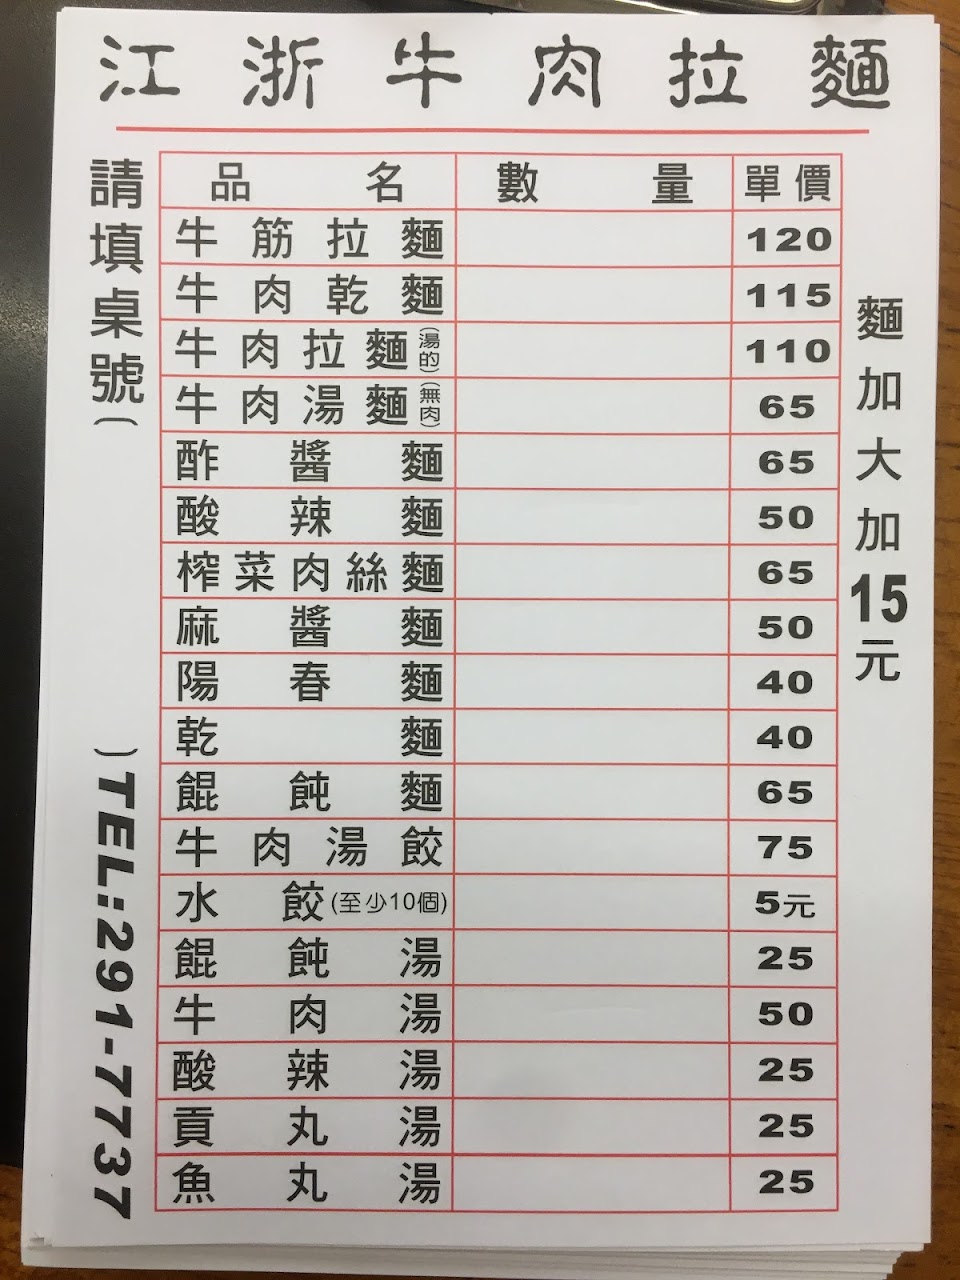 江浙牛肉拉麵
請填桌號( )TEL:291-7737
品名 數量 單價
牛筋拉麵 120
牛肉乾麵 115
牛肉拉麵(湯的) 110
牛肉湯麵(無肉) 65
酢醬麵 65
酸辣麵 50
榨菜肉絲麵 65
麻醬麵 50
陽春麵 40
乾麵 40
餛飩麵 65
牛肉湯餃 75
水餃(至少10個) 5元
餛飩湯 25
牛肉湯 50
酸辣湯 25
貢丸湯 25
魚丸湯 25
麵加大加15元